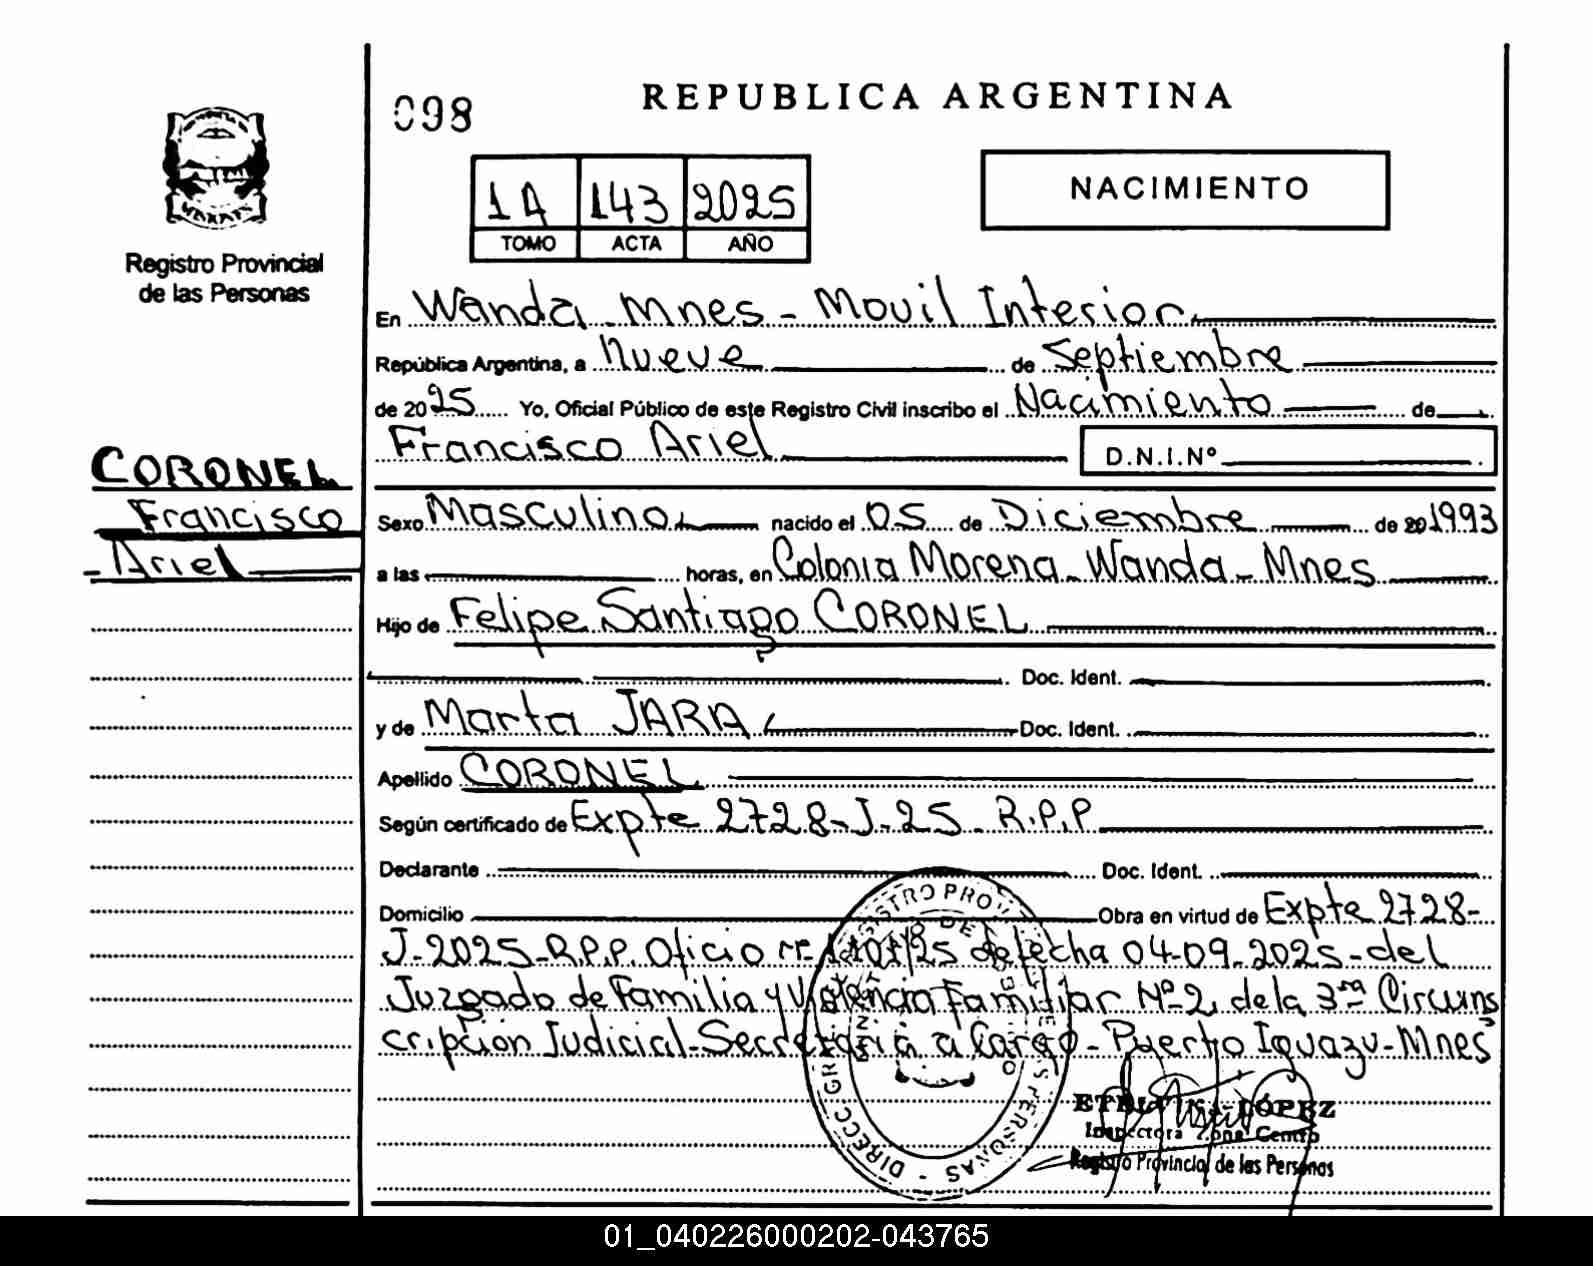 098
REPUBLICA ARGENTINA
NACIMIENTO
1A 143 2025
TOMO ACTA AÑO
Registro Provincial
de las Personas
En Wanda Mnes - Movil Interior
República Argentina, a Nueve de Septiembre
de 2025 Yo, Oficial Público de este Registro Civil inscribo el Nacimiento de
Francisco Ariel D.N.I.Nº
CORONEL
Francisco
Ariel
Sexo Masculino nacido el 05 de Diciembre de 20 1993
a las horas, en Colonia Morena - Wanda - Mnes
Hijo de Felipe Santiago CORONEL
Doc. Ident.
y de Marta JARA Doc. Ident.
Apellido CORONEL
Según certificado de Expte 2728-J-25 R.P.P
Declarante Doc. Ident.
Domicilio Obra en virtud de Expte 2728-
J-2025-R.P.P. Oficio de fecha 04-09-2025-del
Juzgado de Familia y Violencia Familiar Nº 2 de la 3ra Circuns
cripción Judicial-Secretaria a Cargo - Puerto Iguazu-Mnes
LÓPEZ
Inspectora Zona Centro
Registro Provincial de las Personas
01_040226000202-043765